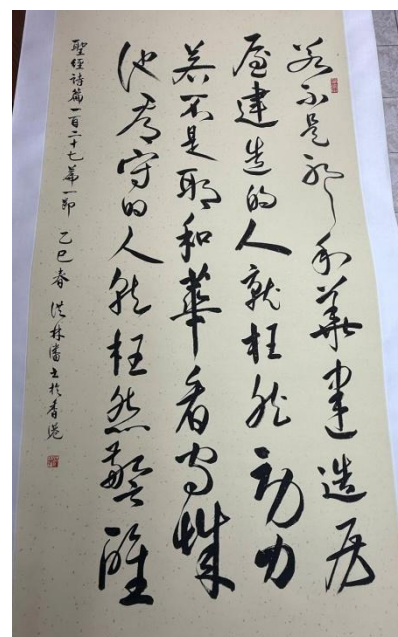 若不是耶和華建造房
屋建造的人就枉然勞力
若不是耶和華看守城
池看守的人就枉然警醒
聖經詩篇一百二十七篇一節 乙巳春 洪林潘書於香港